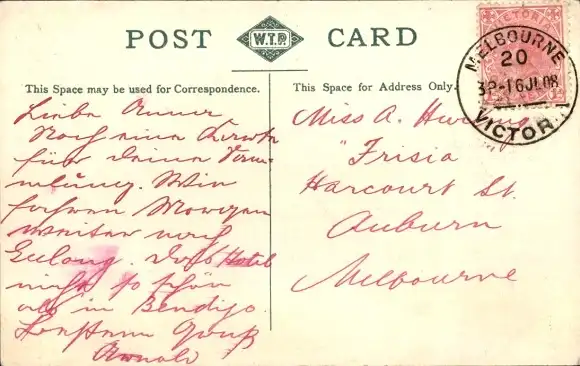 POST CARD
W.T.P.
VICTORIA
MELBOURNE
20
3P-16 JL 08
VICTOR
This Space may be used for Correspondence.
This Space for Address Only.
Liebe Anna
Noch eine Karte
für Deine Samm-
mlung. Wir
fahren Morgen
weiter nach
Geelong. Das Hotel
nicht so schön
als in Bendigo.
Gruß
Arnold
Miss A.
"Frisia"
Harcourt St.
Auburn
Melbourne